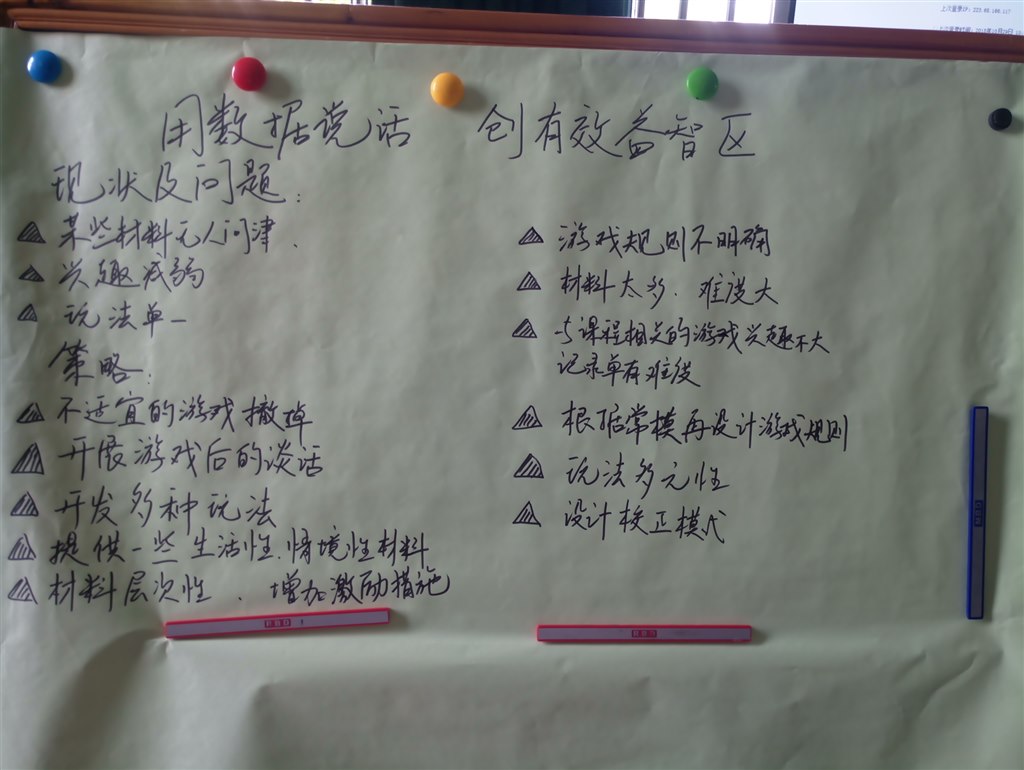 用数据说话 创有效益智区
现状及问题:
某些材料无人问津.
兴趣减弱
玩法单一
游戏规则不明确
材料太多. 难度大
与课程相关的游戏兴趣不大
记录单有难度
策略:
不适宜的游戏撤掉
开展游戏后的谈话
开发多种玩法
提供一些生活性.情境性材料
材料层次性. 增加激励措施
根据常模再设计游戏规则
玩法多元性
设计校正模式